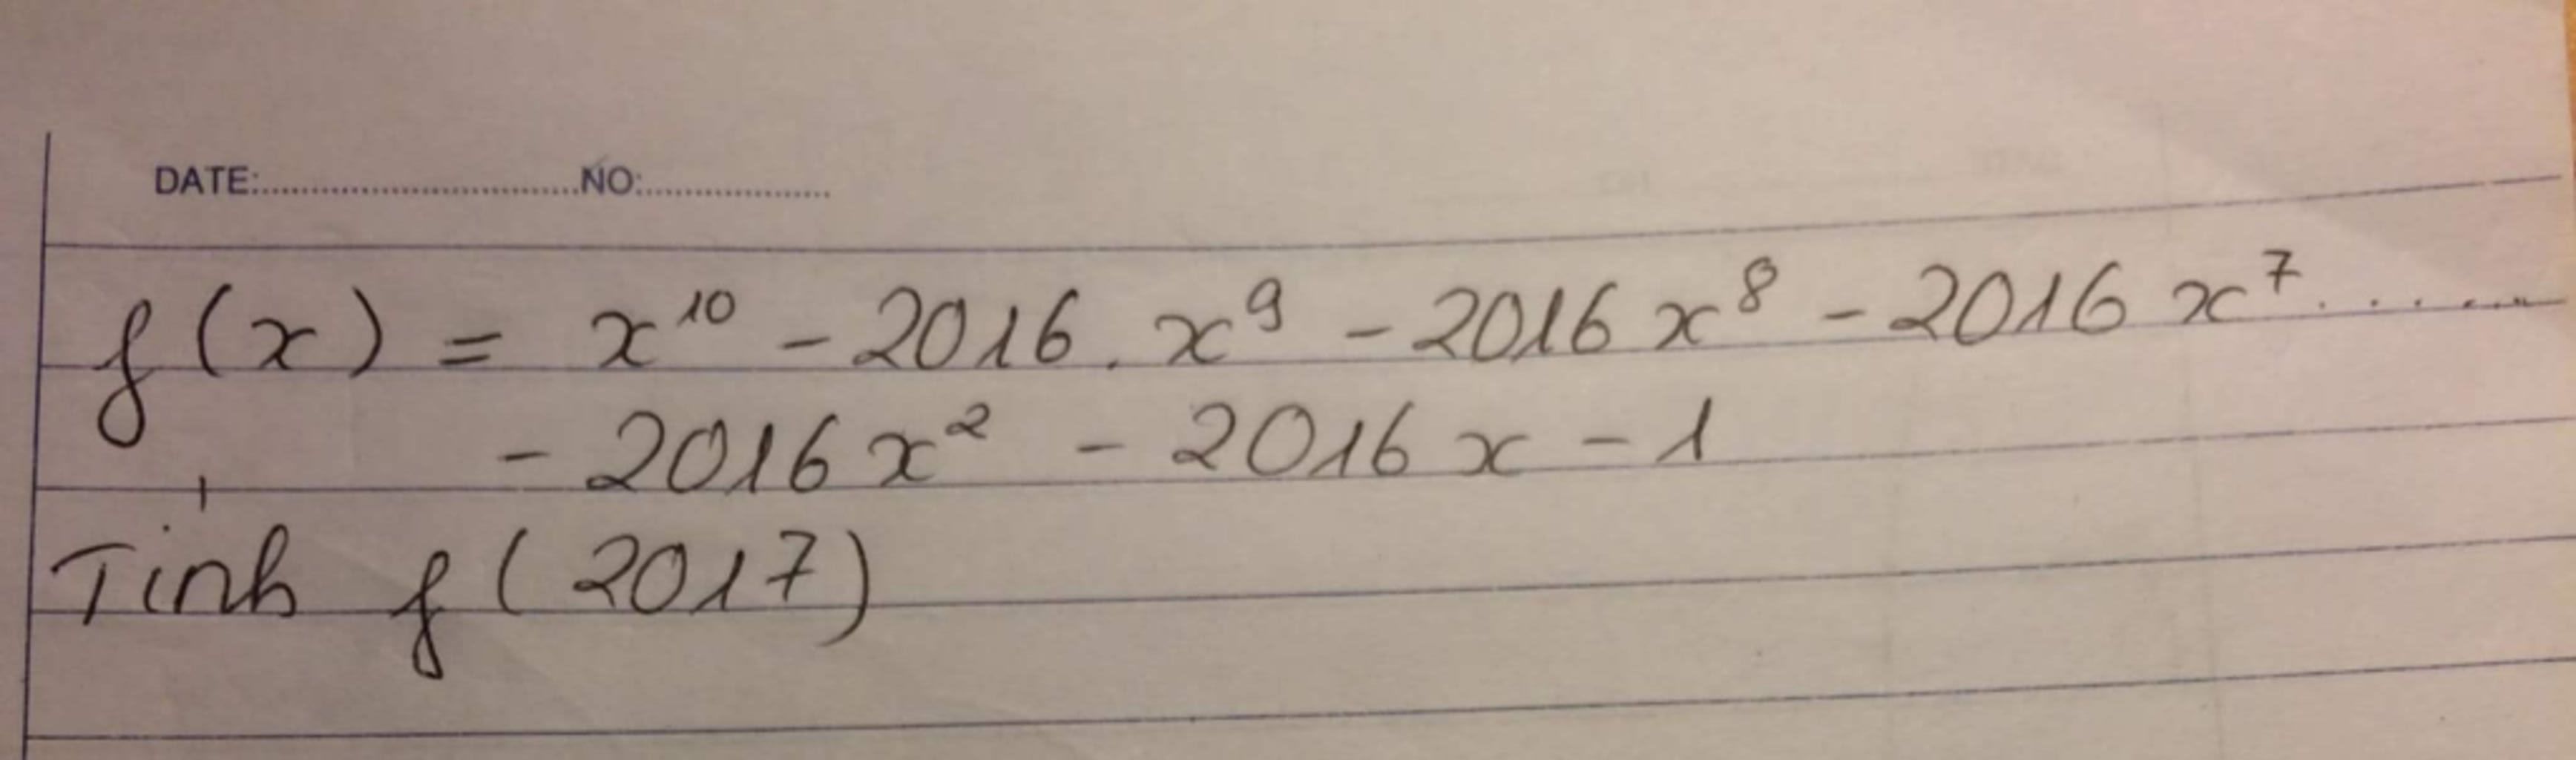 DATE:..............................NO:..................
f(x) = x¹⁰ - 2016. x⁹ - 2016 x⁸ - 2016 x⁷.......
- 2016 x² - 2016 x - 1
Tính f(2017)